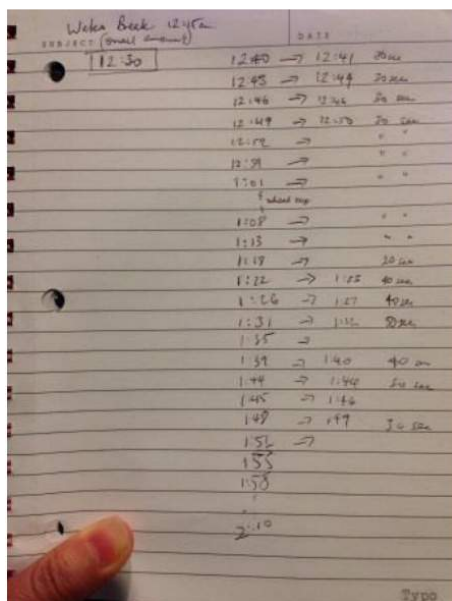 Water Break 12:45am
SUBJECT (small amount) DATE
12:30 12:40 → 12:41 30sec
12:43 → 12:44 30sec
12:46 → 12:46 30 sec
12:49 → 12:50 30 sec
12:52 → " "
12:59 → " "
1:01 → " "
1:08 → " "
1:13 → " "
1:18 → 20 sec
1:22 → 1:23 40 sec
1:26 → 1:27 40sec
1:31 → 1:32 50sec
1:35 →
1:39 → 1:40 40
1:44 → 1:44 50 sec
1:45 → 1:46
1:48 → 1:49 30 sec
1:52 →
1:55
1:58
2:10
Typo